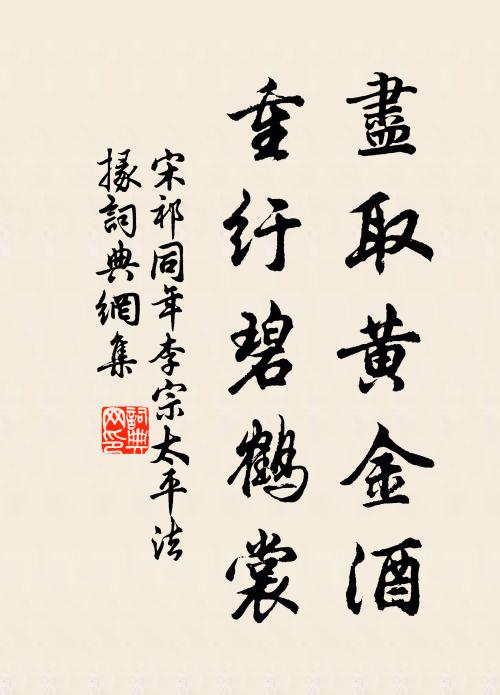 盡取黄金酒
重紆碧鶴裳
宋祁同年李宗太平法
掾詞典網集
詞典
网印